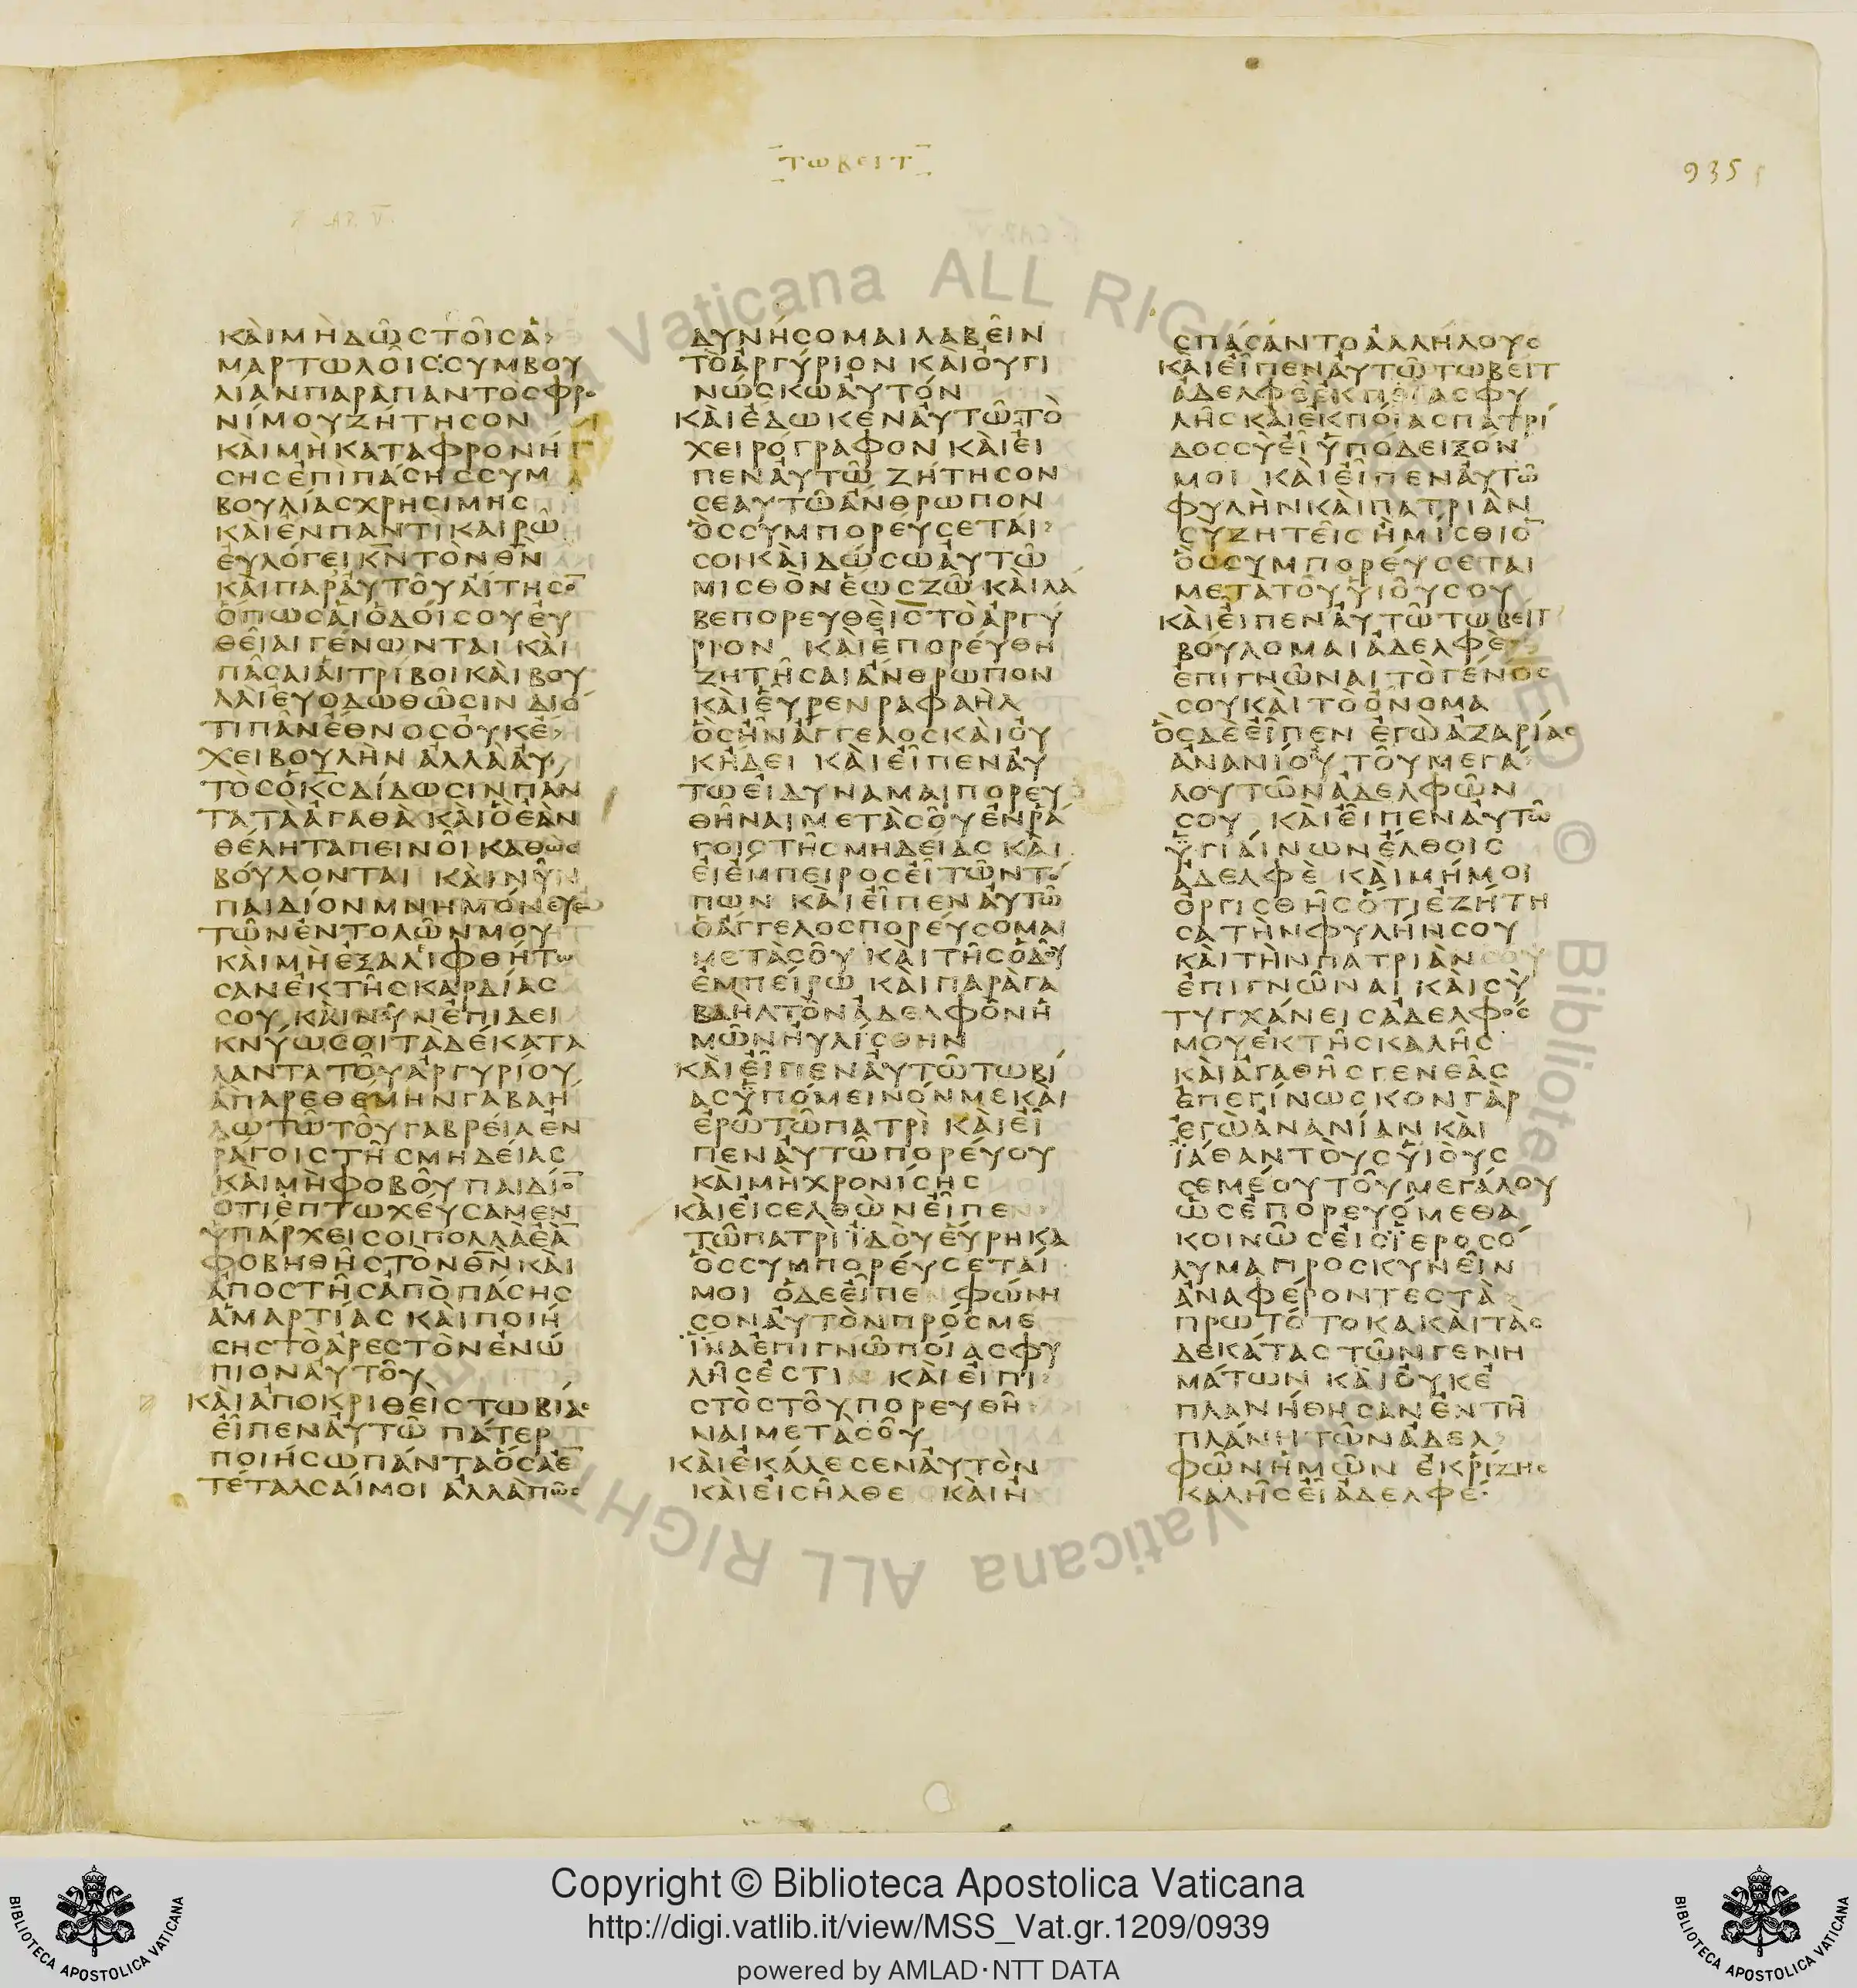 ΤΩΒΕΙΤ
935
ΚΑΙΜΗΔΩΣΤΟΙΣΑ
ΜΑΡΤΩΛΟΙΣ:ΣΥΜΒΟΥ
ΛΙΑΝΠΑΡΑΠΑΝΤΟΣΦΡΟ
ΝΙΜΟΥΖΗΤΗΣΟΝ
ΚΑΙΜΗΚΑΤΑΦΡΟΝΗ
ΣΗΣΕΠΙΠΑΣΗΣΣΥΜ
ΒΟΥΛΙΑΣΧΡΗΣΙΜΗΣ
ΚΑΙΕΝΠΑΝΤΙΚΑΙΡΩ
ΕΥΛΟΓΕΙΚ̅Ν̅ΤΟΝΘ̅Ν̅
ΚΑΙΠΑΡΑΥΤΟΥΑΙΤΗΣΟ̅
ΟΠΩΣΑΙΟΔΟΙΣΟΥΕΥ
ΘΕΙΑΙΓΕΝΩΝΤΑΙ ΚΑΙ
ΠΑΣΑΙΑΙΤΡΙΒΟΙΚΑΙΒΟΥ
ΛΑΙΕΥΟΔΩΘΩΣΙΝ ΔΙΟ
ΤΙΠΑΝΕΘΝΟΣΟΥΚΕ
ΧΕΙΒΟΥΛΗΝ ΑΛΛΑΑΥ
ΤΟΣΟΚ̅Σ̅ΔΙΔΩΣΙΝΠΑΝ
ΤΑΤΑΑΓΑΘΑΚΑΙΟΕΑΝ
ΘΕΛΗΤΑΠΕΙΝΟΙΚΑΘΩΣ
ΒΟΥΛΟΝΤΑΙ ΚΑΙΝΥΝ
ΠΑΙΔΙΟΝΜΝΗΜΟΝΕΥΕ
ΤΩΝΕΝΤΟΛΩΝΜΟΥ
ΚΑΙΜΗΕΞΑΛΙΦΘΗΤΩ
ΣΑΝΕΚΤΗΣΚΑΡΔΙΑΣ
ΣΟΥ ΚΑΙΝΥΝΕΠΙΔΕΙ
ΚΝΥΩΣΟΙΤΑΔΕΚΑΤΑ
ΛΑΝΤΑΤΟΥΑΡΓΥΡΙΟΥ
ΑΠΑΡΕΘΕΜΗΝΓΑΒΑΗ
ΛΩΤΩΤΟΥΓΑΒΡΕΙΑΕΝ
ΡΑΓΟΙΣΤΗΣΜΗΔΕΙΑΣ
ΚΑΙΜΗΦΟΒΟΥΠΑΙΔΙΟ̅
ΟΤΙΕΠΤΩΧΕΥΣΑΜΕΝ
ΥΠΑΡΧΕΙΣΟΙΠΟΛΛΑΕΑ̅
ΦΟΒΗΘΗΣΤΟΝΘ̅Ν̅ΚΑΙ
ΑΠΟΣΤΗΣΑΠΟΠΑΣΗΣ
ΑΜΑΡΤΙΑΣ ΚΑΙΠΟΙΗ
ΣΗΣΤΟΑΡΕΣΤΟΝΕΝΩ
ΠΙΟΝΑΥΤΟΥ
ΚΑΙΑΠΟΚΡΙΘΕΙΣΤΩΒΙΑΣ
ΕΙΠΕΝΑΥΤΩ ΠΑΤΕΡ
ΠΟΙΗΣΩΠΑΝΤΑΟΣΑΕ̅
ΤΕΤΑΛΣΑΙΜΟΙ ΑΛΛΑΠΩΣ
ΔΥΝΗΣΟΜΑΙΛΑΒΕΙΝ
ΤΟΑΡΓΥΡΙΟΝ ΚΑΙΟΥΓΙ
ΝΩΣΚΩΑΥΤΟΝ
ΚΑΙΕΔΩΚΕΝΑΥΤΩΤΟ
ΧΕΙΡΟΓΡΑΦΟΝ ΚΑΙΕΙ
ΠΕΝΑΥΤΩ ΖΗΤΗΣΟΝ
ΣΕΑΥΤΩΑΝΘΡΩΠΟΝ
ΟΣΣΥΜΠΟΡΕΥΣΕΤΑΙ
ΣΟΙΚΑΙΔΩΣΩΑΥΤΩ
ΜΙΣΘΟΝΕΩΣΖΩ ΚΑΙΛΑ
ΒΕΠΟΡΕΥΘΕΙΣΤΟΑΡΓΥ
ΡΙΟΝ ΚΑΙΕΠΟΡΕΥΘΗ
ΖΗΤΗΣΑΙΑΝΘΡΩΠΟΝ
ΚΑΙΕΥΡΕΝΡΑΦΑΗΛ
ΟΣΗΝΑΓΓΕΛΟΣΚΑΙΟΥ
ΚΗΔΕΙ ΚΑΙΕΙΠΕΝΑΥ
ΤΩΕΙΔΥΝΑΜΑΙΠΟΡΕΥ
ΘΗΝΑΙΜΕΤΑΣΟΥΕΝΡΑ
ΓΟΙΣΤΗΣΜΗΔΕΙΑΣ ΚΑΙ
ΕΙΕΜΠΕΙΡΟΣΕΙΤΩΝΤΟ
ΠΩΝ ΚΑΙΕΙΠΕΝΑΥΤΩ
ΟΑΓΓΕΛΟΣΠΟΡΕΥΣΟΜΑΙ
ΜΕΤΑΣΟΥ ΚΑΙΤΗΣΟΔΟΥ
ΕΜΠΕΙΡΩ ΚΑΙΠΑΡΑΓΑ
ΒΑΗΛΤΟΝΑΔΕΛΦΟΝΗ
ΜΩΝΗΥΛΙΣΘΗΝ
ΚΑΙΕΙΠΕΝΑΥΤΩΤΩΒΙ
ΑΣΥΠΟΜΕΙΝΟΝΜΕΚΑΙ
ΕΡΩΤΩΠΑΤΡΙ ΚΑΙΕΙ
ΠΕΝΑΥΤΩΠΟΡΕΥΟΥ
ΚΑΙΜΗΧΡΟΝΙΣΗΣ
ΚΑΙΕΙΣΕΛΘΩΝΕΙΠΕ
ΤΩΠΑΤΡΙΪΔΟΥΕΥΡΗΚΑ
ΟΣΣΥΜΠΟΡΕΥΣΕΤΑΙ
ΜΟΙ ΟΔΕΕΙΠΕ ΦΩΝΗ
ΣΟΝΑΥΤΟΝΠΡΟΣΜΕ
ΪΝΑΕΠΙΓΝΩΠΟΙΑΣΦΥ
ΛΗΣΕΣΤΙ ΚΑΙΕΙΠΙ
ΣΤΟΣΤΟΥΠΟΡΕΥΘΗ
ΝΑΙΜΕΤΑΣΟΥ
ΚΑΙΕΚΑΛΕΣΕΝΑΥΤΟΝ
ΚΑΙΕΙΣΗΛΘΕ ΚΑΙΗ
ΣΠΑΣΑΝΤΟΑΛΛΗΛΟΥΣ
ΚΑΙΕΙΠΕΝΑΥΤΩΤΩΒΕΙΤ
ΑΔΕΛΦΕΕΚΠΟΙΑΣΦΥ
ΛΗΣΚΑΙΕΚΠΟΙΑΣΠΑΤΡΙ
ΔΟΣΣΥΕΙΫΠΟΔΕΙΞΟΝ
ΜΟΙ ΚΑΙΕΙΠΕΝΑΥΤΩ
ΦΥΛΗΝΚΑΙΠΑΤΡΙΑΝ
ΣΥΖΗΤΕΙΣΗΜΙΣΘΙΟ̅
ΟΣΣΥΜΠΟΡΕΥΣΕΤΑΙ
ΜΕΤΑΤΟΥΥΙΟΥΣΟΥ
ΚΑΙΕΙΠΕΝΑΥΤΩΤΩΒΕΙΤ
ΒΟΥΛΟΜΑΙΑΔΕΛΦΕ
ΕΠΙΓΝΩΝΑΙΤΟΓΕΝΟΣ
ΣΟΥΚΑΙΤΟΟΝΟΜΑ
ΟΣΔΕΕΙΠΕΝ ΕΓΩΑΖΑΡΙΑΣ
ΑΝΑΝΙΟΥ ΤΟΥΜΕΓΑ
ΛΟΥΤΩΝΑΔΕΛΦΩΝ
ΣΟΥ ΚΑΙΕΙΠΕΝΑΥΤΩ
ΫΓΙΑΙΝΩΝΕΛΘΟΙΣ
ΑΔΕΛΦΕ ΚΑΙΜΗΜΟΙ
ΟΡΓΙΣΘΗΣΟΤΙΕΖΗΤΗ
ΣΑΤΗΝΦΥΛΗΝΣΟΥ
ΚΑΙΤΗΝΠΑΤΡΙΑΝΣΟΥ
ΕΠΙΓΝΩΝΑΙ ΚΑΙΣΥ
ΤΥΓΧΑΝΕΙΣΑΔΕΛΦΟΣ
ΜΟΥΕΚΤΗΣΚΑΛΗΣ
ΚΑΙΑΓΑΘΗΣΓΕΝΕΑΣ
ΕΠΕΓΙΝΩΣΚΟΝΓΑΡ
ΕΓΩΑΝΑΝΙΑΝ ΚΑΙ
ΪΑΘΑΝΤΟΥΣΥΙΟΥΣ
ΣΕΜΕΟΥΤΟΥΜΕΓΑΛΟΥ
ΩΣΕΠΟΡΕΥΟΜΕΘΑ
ΚΟΙΝΩΣΕΙΣΪΕΡΟΣΟ
ΛΥΜΑΠΡΟΣΚΥΝΕΙΝ
ΑΝΑΦΕΡΟΝΤΕΣΤΑ
ΠΡΩΤΟΤΟΚΑΚΑΙΤΑΣ
ΔΕΚΑΤΑΣΤΩΝΓΕΝΗ
ΜΑΤΩΝ ΚΑΙΟΥΚΕ
ΠΛΑΝΗΘΗΣΑΝΕΝΤΗ
ΠΛΑΝΗΤΩΝΑΔΕΛ
ΦΩΝΗΜΩΝ ΕΚΡΙΖΗΣ
ΚΑΛΗΣΕΙΑΔΕΛΦΕ
Vaticana ALL RIG
© Bibliote
Vaticana ALL RIGHT
Copyright © Biblioteca Apostolica Vaticana
http://digi.vatlib.it/view/MSS_Vat.gr.1209/0939
powered by AMLAD·NTT DATA
BIBLIOTECA APOSTOLICA VATICANA
BIBLIOTECA APOSTOLICA VATICANA